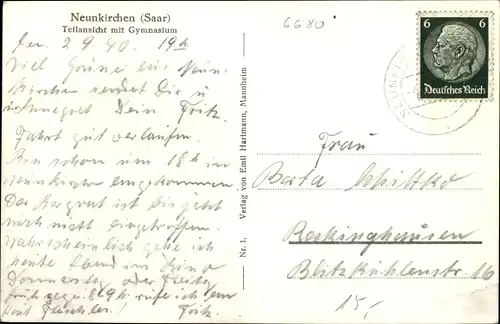 Neunkirchen (Saar)
Teilansicht mit Gymnasium
6680
den 2 9 40. 19h
Viel Grüße aus Neun
kirchen sendet Dir
Dein Fritz.
Fahrt gut verlaufen.
Bin schon um 18 h in
Neunkirchen angekommen
Das ist bis jetzt
noch nicht eingetroffen.
Wahrscheinlich gehe ich
heute Abend ins Kino
Donnerstag oder Freitag
früh gegen 8-9 h rufe ich
Fritz.
Nr. 1. Verlag von Emil Hartmann, Mannheim
6 6
Deutsches Reich
Frau
Berta Schittko
Recklinghausen
Blitzkuhlenstr 16
15,-